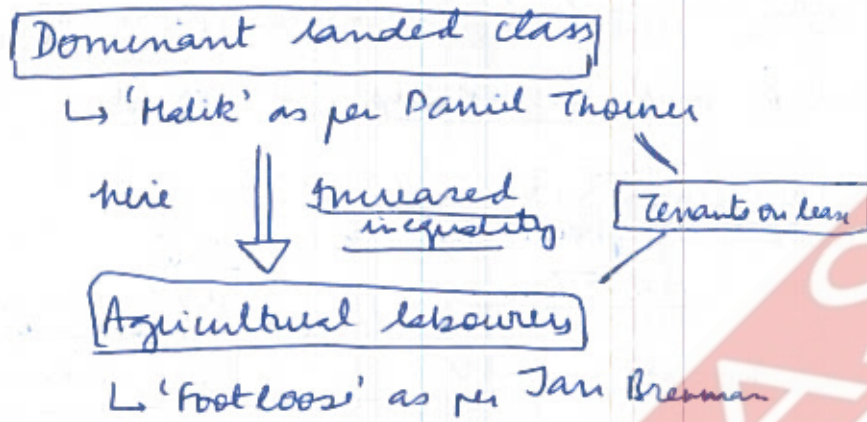 Dominant landed class
↳ 'Malik' as per Daniel Thorner
hire
Increased
inequality
Tenants on lease
Agricultural labourers
↳ 'Footloose' as per Jan Breman